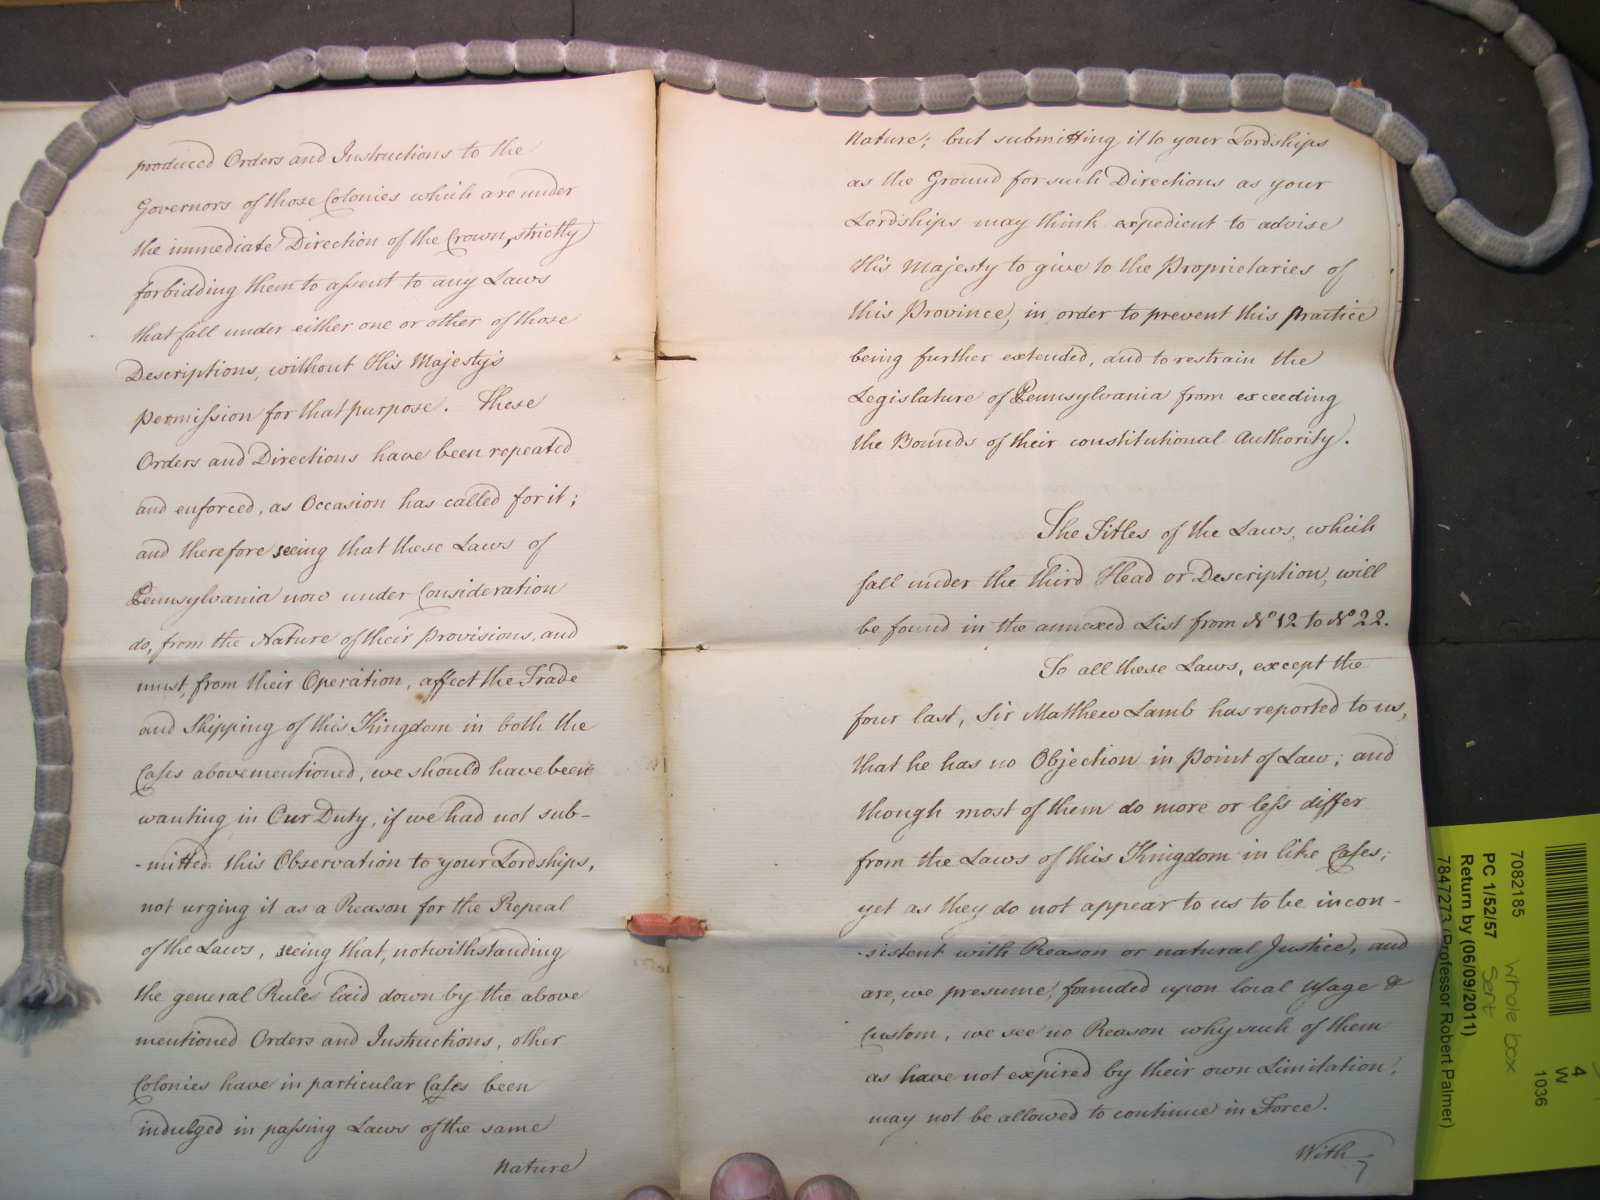 produced Orders and Instructions to the
Governors of those Colonies which are under
the immediate Direction of the Crown, strictly
forbidding them to assent to any Laws
that fall under either one or other of those
Descriptions, without His Majesty's
Permission for that purpose. These
Orders and Directions have been repeated
and enforced, as Occasion has called for it;
and therefore seeing that these Laws of
Pennsylvania now under Consideration
do, from the Nature of their Provisions, and
must, from their Operation, affect the Trade
and Shipping of this Kingdom in both the
Cases abovementioned, we should have been
wanting in Our Duty, if we had not sub-
-mitted this Observation to your Lordships,
not urging it as a Reason for the Repeal
of the Laws, seeing that, notwithstanding
the general Rule laid down by the above
mentioned Orders and Instructions, other
Colonies have in particular Cases been
indulged in passing Laws of the same
Nature
Nature; but submitting it to your Lordships
as the Ground for such Directions as your
Lordships may think expedient to advise
His Majesty to give to the Proprietaries of
this Province, in order to prevent this practice
being further extended, and to restrain the
Legislature of Pennsylvania from exceeding
the Bounds of their constitutional Authority.
The Titles of the Laws, which
fall under the third Head or Description, will
be found in the annexed List from No. 12 to No. 22.
To all these Laws, except the
four last, Sir Matthew Lamb has reported to us,
that he has no Objection in Point of Law; and
though most of them do more or less differ
from the Laws of this Kingdom in like Cases;
yet as they do not appear to us to be incon-
-sistent with Reason or natural Justice, and
are, we presume, founded upon local Usage &
Custom, we see no Reason why such of them
as have not expired by their own Limitation,
may not be allowed to continue in Force.
With
4
W
1036
7082185
whole box
PC 1/52/57
Sent
Return by (06/09/2011)
7847273 (Professor Robert Palmer)